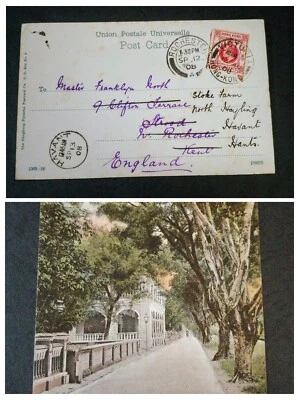 Union Postale Universelle
Post Card
ROCHESTER
SP 12
08
VICTORIA
HONG-KONG
To
Master Franklyn North
9 Clifton Terrace
Strood
Nr. Rochester
Kent
England.
Stoke Farm
North Hayling
Havant
Hants.
HAVANT
SP 13
08